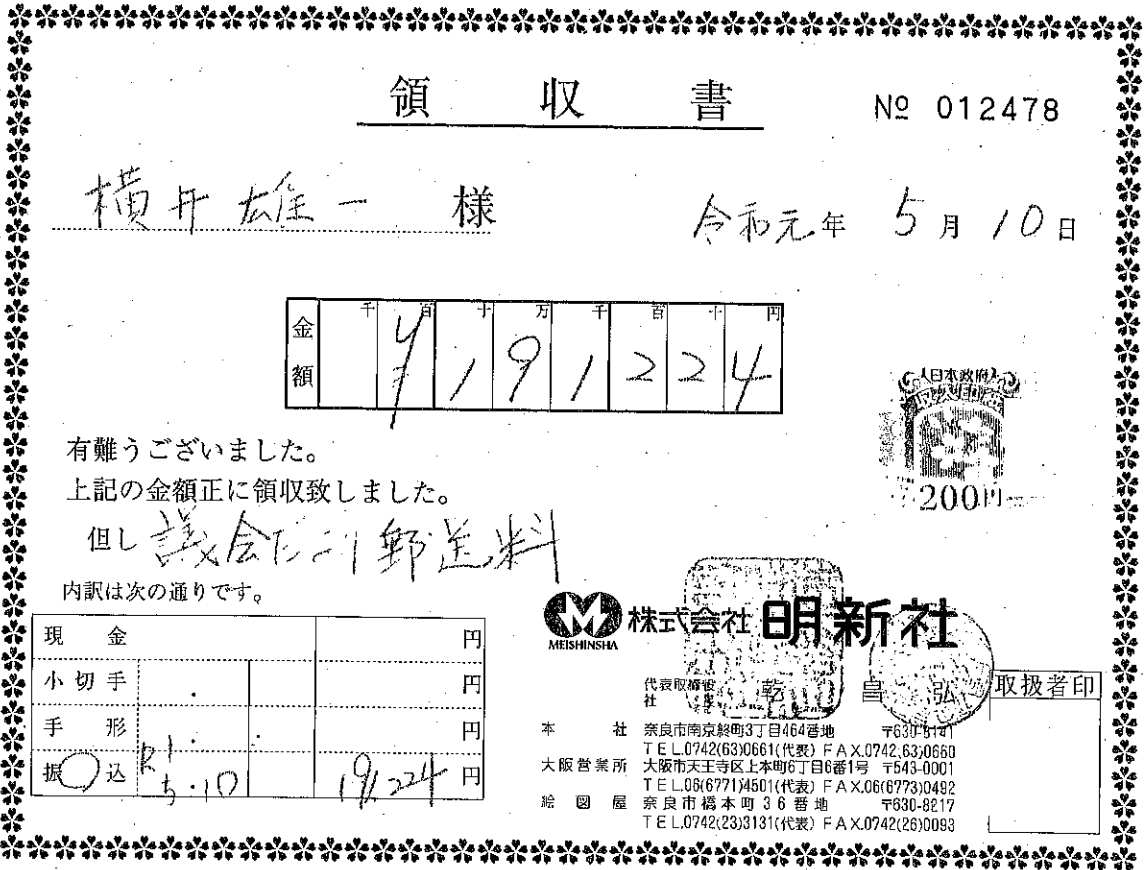 領収書 № 012478
横井雄一 様
令和元年 5月10日
金額 千 百 十 万 千 百 十 円
¥191224
日本政府
収入印紙
200円
有難うございました。
上記の金額正に領収致しました。
但し 議会だより郵送料
内訳は次の通りです。
現金 円
小切手 . 円
手形 . . 円
振込 R1 5.10 191,224 円
MEISHINSHA
株式会社 明新社
代表取締役社長 乾昌弘
取扱者印
本社 奈良市南京終町3丁目464番地 〒630-8141
TEL.0742(63)0661(代表) FAX.0742(63)0660
大阪営業所 大阪市天王寺区上本町6丁目6番1号 〒543-0001
TEL.06(6771)4501(代表) FAX.06(6773)0492
絵図屋 奈良市橋本町36番地 〒630-8217
TEL.0742(23)3131(代表) FAX.0742(26)0093